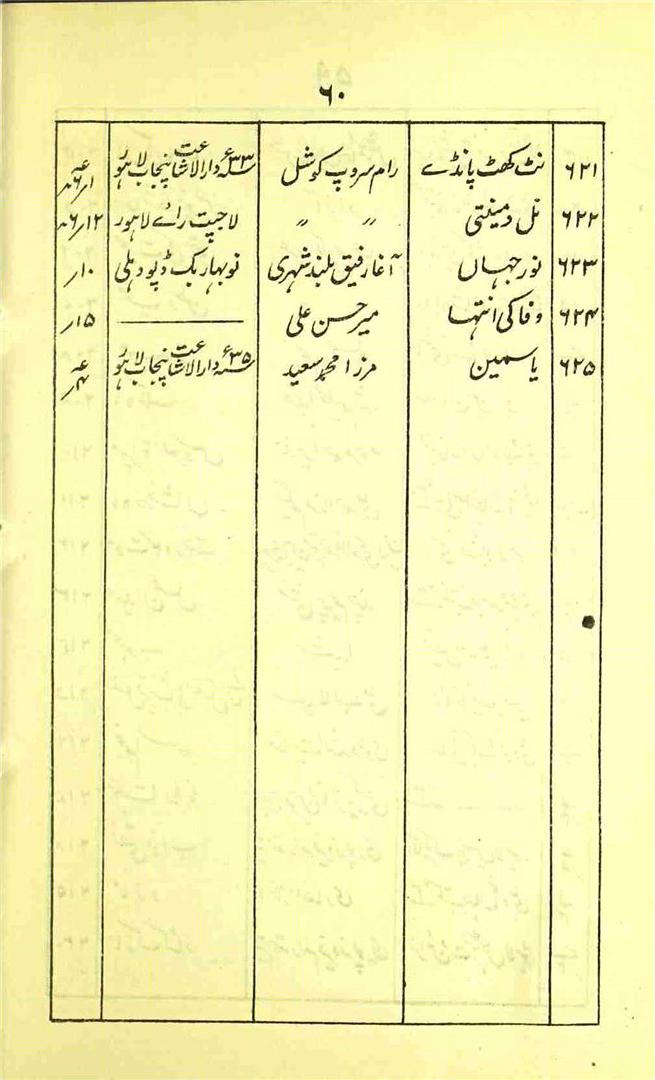 ۶۰
۶۲۱ نٹ کھٹ پانڈے رام سروپ کوشل ۳۳ء دارالاشاعت پنجاب لاہور
۶۲۲ نل دمینتی " " لاجپت رائے لاہور ۱۲/۶
۶۲۳ نورجہاں آغا رفیق بلند شہری نوبہار بک ڈپو دہلی ۱۰ر
۶۲۴ وفا کی انتہا میر حسن علی ——— ۱۵ر
۶۲۵ یاسمین مرزا محمد سعید ۳۵ء دارالاشاعت پنجاب لاہور